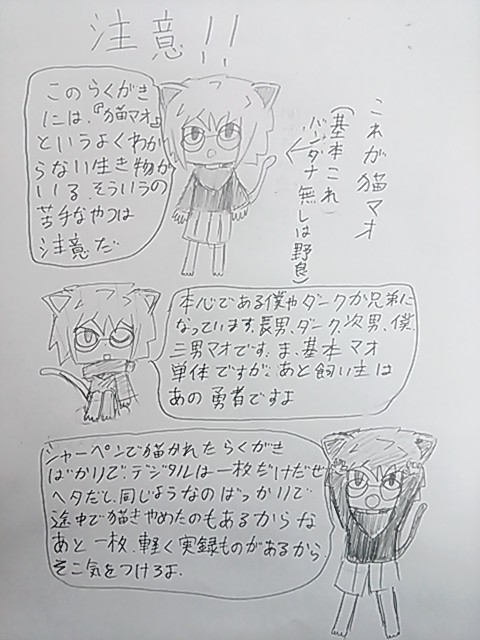 注意!!
このらくがき
には、『猫マオ』
というよくわか
らない生き物が
いる。そういうの
苦手なやつは
注意だ
これが猫マオ
(基本これ
バンダナ無しは野良)
本心である僕やダークが兄弟に
なっています。長男、ダーク、次男、僕、
三男マオです。ま、基本マオ
単体ですが。あと飼い主は
あの勇者ですよ
シャーペンで描かれたらくがき
ばかりで、デジタルは一枚だけだぜ
ヘタだし、同じようなのばっかりで
途中で描きやめたのもあるからな
あと一枚、軽く実録ものがあるから、
そこ気をつけろよ.